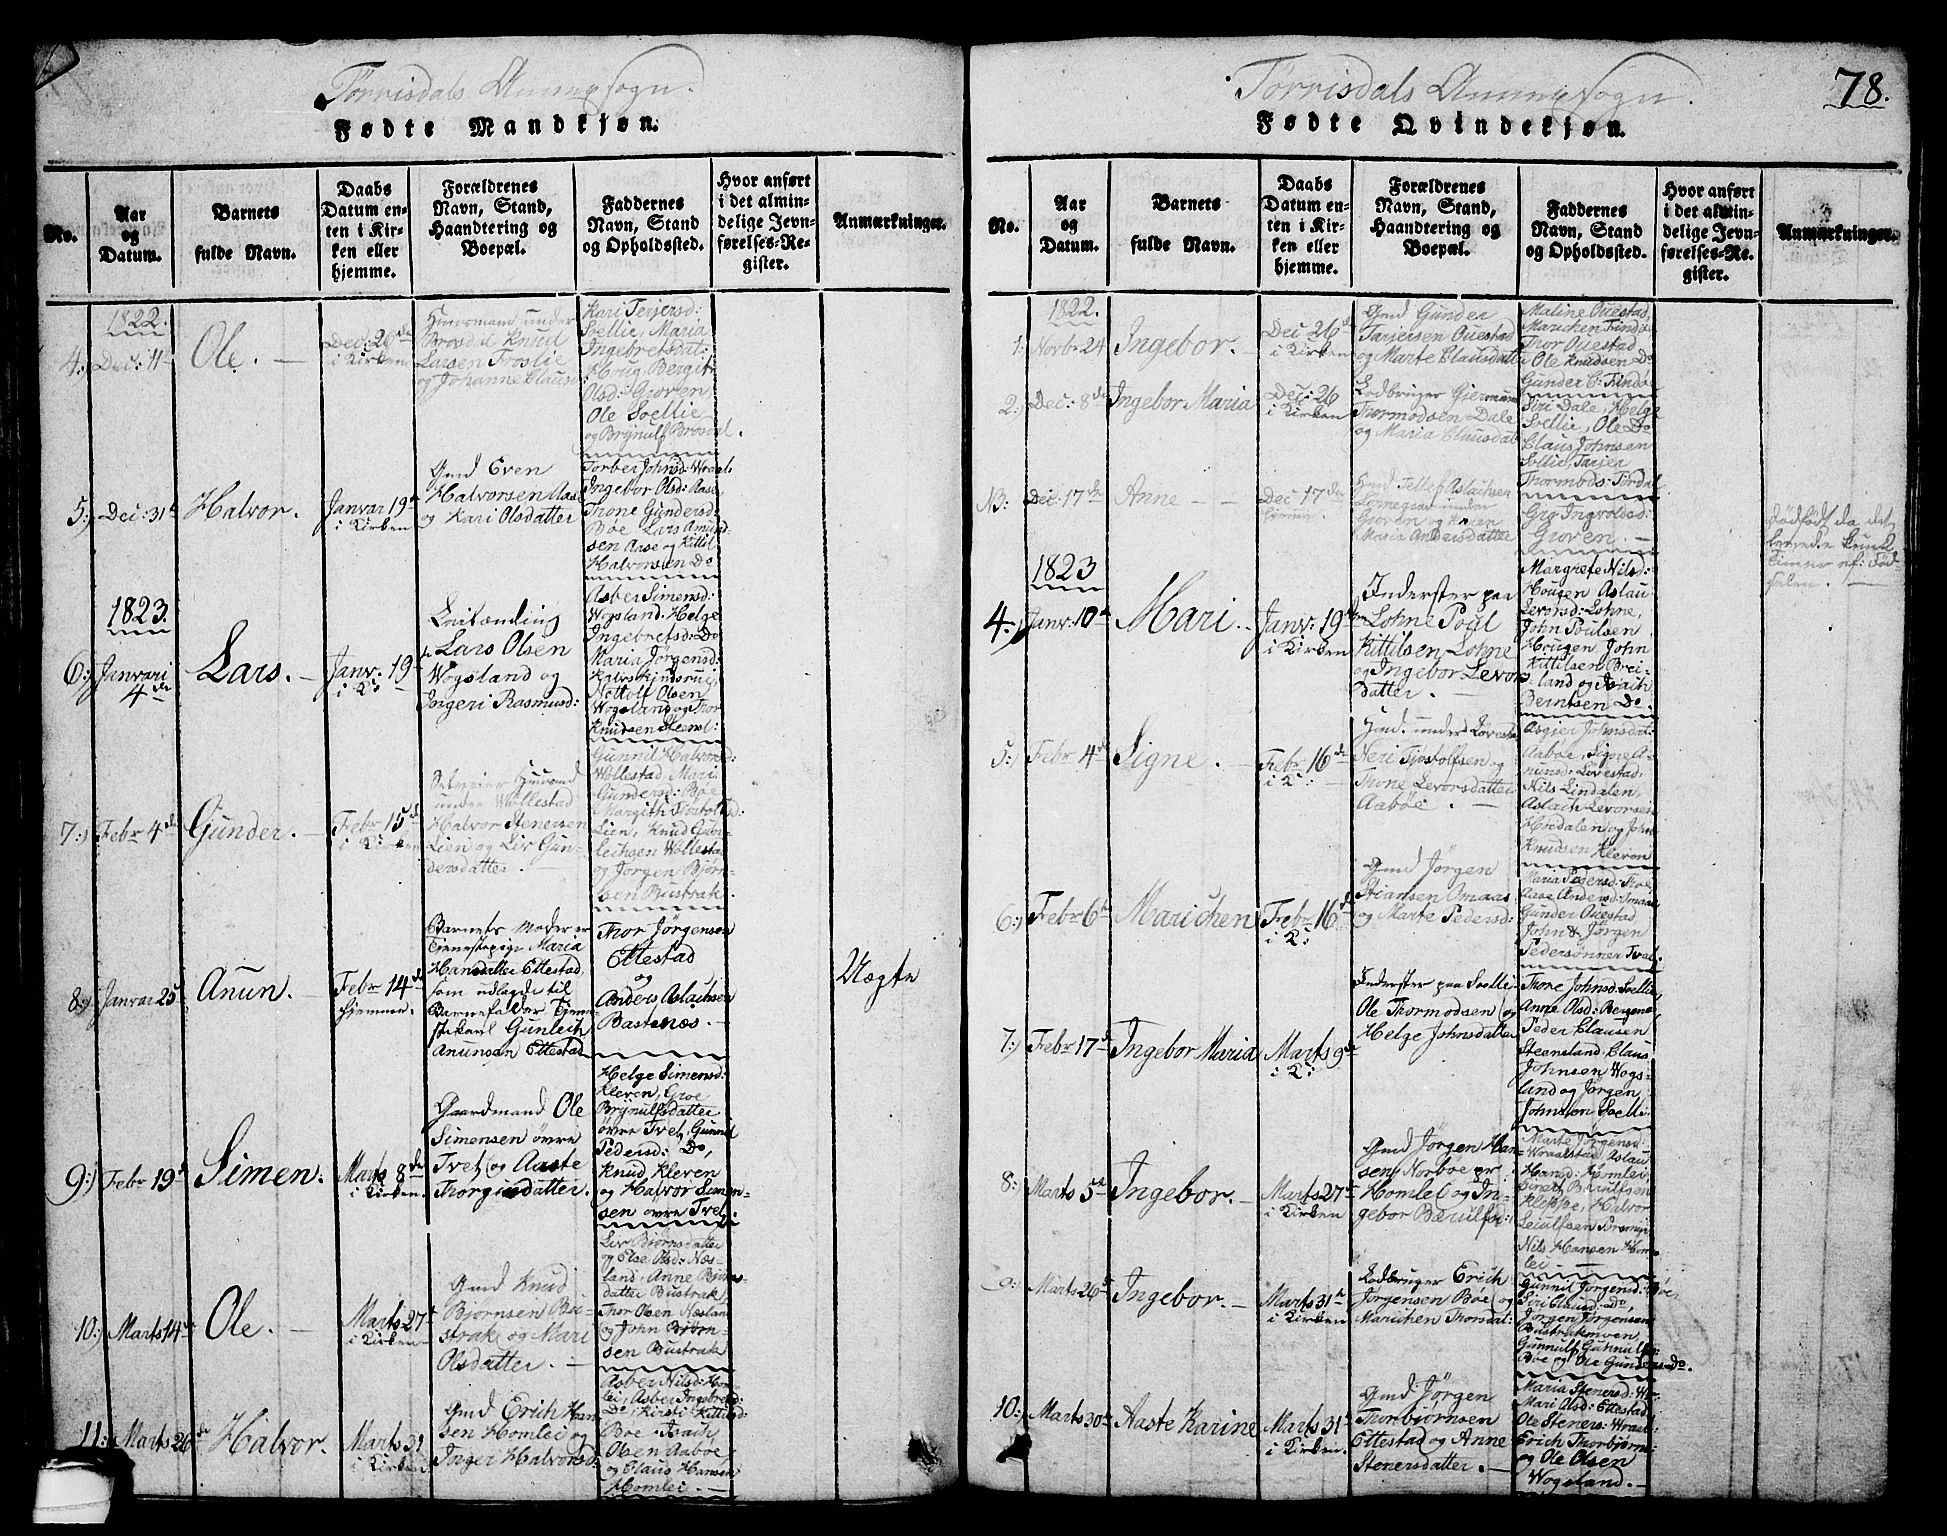 Tørrisdals Annexsogn.
Fødte Mandkjøn.
No.
Aar
og
Datum.
Barnets
fulde Navn.
Daabs
Datum en-
ten i Kir-
ken eller
hjemme.
Forældrenes
Navn, Stand,
Haandtering og
Boepæl.
Faddernes
Navn, Stand
og Opholdssted.
Hvor anført
i det almin-
delige Jevn-
førelses-Re-
gister.
Anmærkninger.
1822.
4:) Dec: 11te
Ole. —
Dec: 26de
i Kirken
Huusmand under
Brosdal Knud
Larsen Froslie
og Johanne Clausd
Kari Terjersd:
Soellie, Maria
Ingebretsdat:
Houg, Bergit
Olsd: Groven,
Ole Soellie
og Brÿnulf Brosdal.
5:) Dec: 31te
Halvor.
Janvar 19de
i Kirken
Gmd Even
Halvorsen Aase
og Kari Olsdatter
Torber Johnsd: Wraals
Ingebor Olsd: Aase,
Thone Gundersd:
Bøe Lars Amund-
sen Aase og Kittil
Halvorsen Do
1823.
6:) Janvari
4de
Lars. —
Janv: 19de
i K:
Leilænding
Lars Olsen
Wogsland og
Ingeri Rasmusd:
Asber Simensd:
Wogsland, Helge
Ingebretsd: Do
Maria Jørgensd:
Nottolf Olsen
Wogsland og Thor
Knudsen Steensl:
7:) Febr 4de
Gunder. —
Febr 15de
i Kirken
Selveier Huusmd
under Wollestad
Halvor Stenersen
Lien og Liv Gun-
dersdatter. —
Gunnil Halvorsd:
Wollestad Mari
Gundersd: Bøe
Margith Tiostolsd:
Lien, Knud Gun-
leichsen Wollestad
og Jørgen Bjørn-
sen Bustrak.
8:) Janvar 25
Anun. —
Febr 14de
hjemme.
Barnets Moder er
Tjenestepige Maria
Hansdatter Ettestad,
som udlagde til
Barnefader Tjene-
stekarl Gunleich
Anunsen Ettestad
Thor Jørgensen
Ettestad
og
Anders Aslachsen
Bastenes. —
Uægte
9:) Febr 19de
Simen.
Marts 8de
i Kirken.
Gaardmand Ole
Simensen øvre
Tvet og Aaste
Thorgisdatter.
Helge Simensd:
Kleven, Groe
Brÿnulfsdatter
øvre Tvet, Gunnil
Pedersd: Do,
Knud Kleven
og Halvor Simen-
sen øvre Tvet.
10:) Marts 14de
Ole. —
Marts 27de
i Kirken
Gmd Knud
Bjørnsen Bu-
strake og Mari
Olsdatter. —
Liv Bjørnsdatter
og Else Olsd: Næs-
land, Anne Bjørns-
datter Bustrak,
Thor Olsen Næsland
og John Bjørn-
sen Bustrak
11:) Marts 26de
Halvor.
Marts 31
i Kirken
Gmd Erich Han-
sen Homlei og
Inger Halvorsd:
Asber Nilsd: Hom-
lei, Asber Ingebretsd:
Do, Kirsti Kittilsd:
Bøe Isach
Olsen Aabøe,
og Claus Hansen
Homlei. —
78.
Tørrisdals Annexsogn.
Fødte Qvindekjøn.
No.
Aar
og
Datum.
Barnets
fulde Navn.
Daabs
Datum en-
ten i Kir-
ken eller
hjemme.
Forældrenes
Navn, Stand,
Haandtering og
Boepæl.
Faddernes
Navn, Stand
og Opholdssted.
Hvor anført
i det almin-
delige Jevn-
førelses-Re-
gister.
Anmærkninger.
1822.
1:) Novbr 24
Ingebor. —
Dec 26de
i Kirken
Gmd Gunder
Tarjersen Ouestad
og Marte Clausdatter
Maline Ouestad,
Marichen Findøe
Thor Ouestad
Ole Knudsen Do
Gunder C: Findøe
2:) Dec: 8de
Ingebor Maria
Dec: 26
i Kirken
Lodbruger Gjermund
Thormodsen Dale
og Maria Clausdat
Siri Dale, Helge
Soellie, Ole Do
Claus Johnsen
Sollie, Tarjer
Thormods: Tordal
N3: Dec: 17de
Anne — —
Dec 17de
Hmd Tellef Aslachsen
under
Groven og Karen
Maria Andersdatter
Gro Ingvoldsd:
Groven. —
Dødfødt da det
Timer ef: Fød-
selen. —
1823
4:) Janv: 10de
Mari. —
Janv: 19de
i Kirken
Inderster paa
Lohne Poul
Kittilsen Lohne
og Ingebor Levors-
datter. —
Margrete Nils:
Hougen Aslau
Levorsd: Lohne,
John Poulsen
Hougen John
Kittilsen Brei-
land og Isach
Berntsen Do.
5:) Febr 4de
Signe. —
Febr 16de
i K: —
Hmd. under Lovestad
Neri Tjostolfsen og
Thone Levorsdatter
Aabøe. —
Asgjer Johnsdat:
Aabøe, Signe A-
nunsd: Lovestad,
Nils Lindalen,
Aslach Levorsen
Hvedalen og John
Knudsen Kleven
6:) Febr 6te
Marichen
Febr 16de
i K:
Gmd Jørgen
Stiansen Omaas
og Marte Pedersd:
Maria Pedersd: Thoe
Aase Andersd: Omaas
Gunder Ouestad
John & Jørgen
Pedersønner Tvet
7:) Febr 17de
Ingebor Maria
Marts 9de
i K:
Inderster paa Soelli
Ole Thormodsen og
Helge Johnsdatter
Thone Johnsd: Soellie,
Anne Olsd: Bergene
Peder Clausen
Steensland Claus
Johnsen Wogs-
land og Jørgen
Johnsen Soelli
8:) Marts 5te
Ingebor. —
Marts 27de
i Kirken
Gmd Jørgen Han-
sen Norboe pr
Homlei og In-
gebor Bærulfsd:
Marte Jørgensd:
Wraalstad, Aslau
Hansd: Homlei,
Bærulfsen
Kleppe, Halvor
Leiulfsen
Nils Hansen Hom-
lei —
9:) Marts 26de
Ingebor. —
Marts 31te
i Kirken
Lodbruger Erich
Jørgensen Bøe og
Marichen Thorsdat:
Gunnil Jørgensd: Bøe,
Siri Clausd: Do,
Jørgen Jørgensen
Bustrakmoen,
Gunnulf Gunnulfs:
Bøe og Ole Gunders: Do.
10:) Marts 30te
Aaste Karine
Marts 31te
i Kirken.
Gmd: Jørgen
Thorbjørnsen
Ettestad og Anne
Stenersdatter. —
Maria Stenersd: Wr-
Mari Olsd: Ettestad,
Ole Steners: Wraals:
Erich Thorbjørns:
og Ole Olsen
Wogsland. —